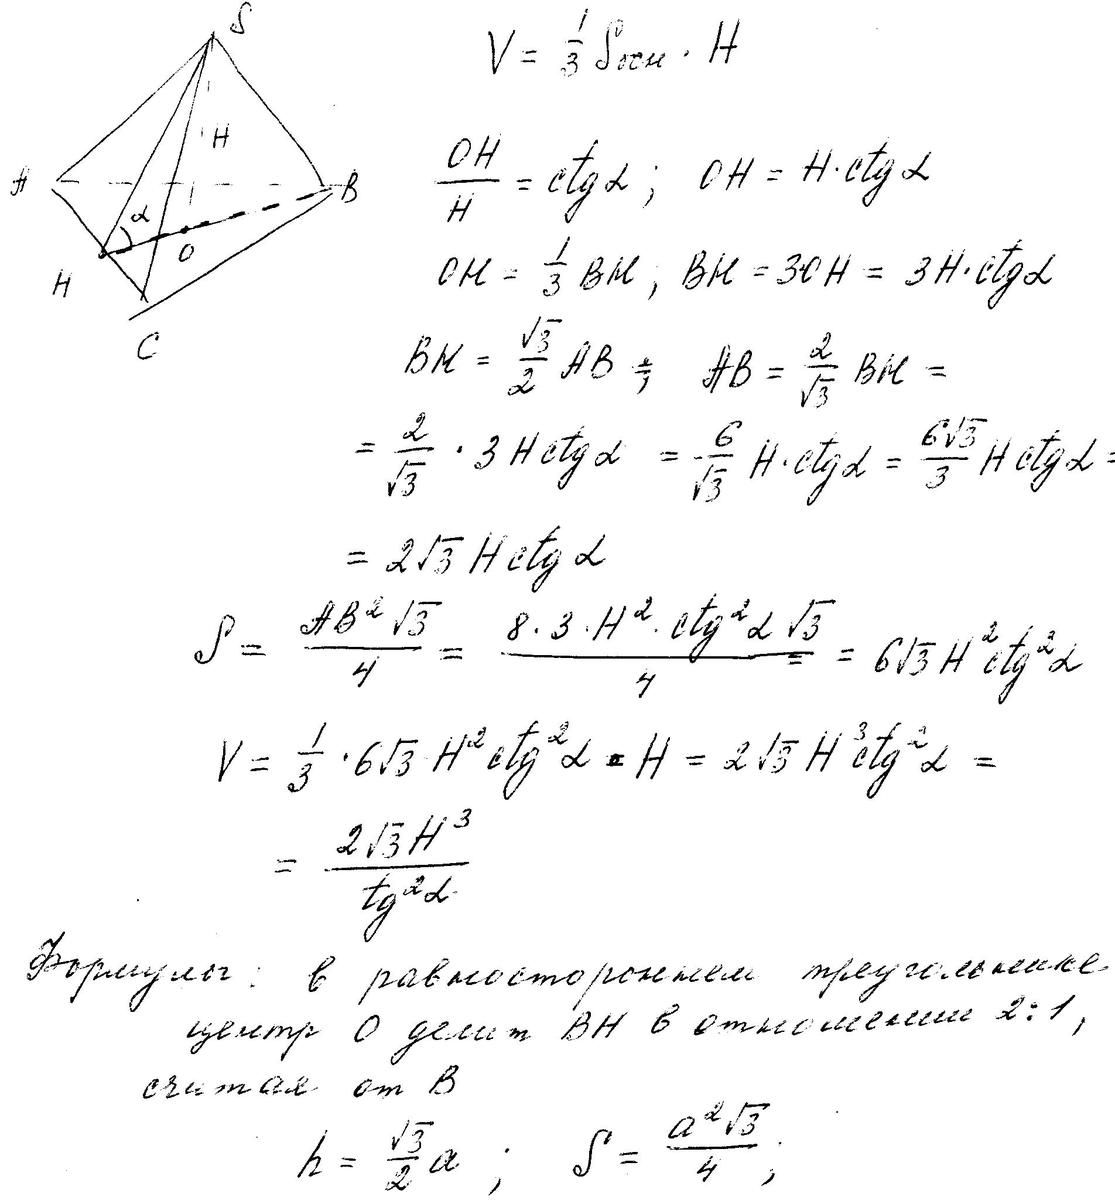 S
V = 1/3 Sосн · H
H
OH/H = ctgα ; OH = H·ctgα
A
B
α
O
H
C
OH = 1/3 BH ; BH = 3·OH = 3H·ctgα
BH = √3/2 AB ; AB = 2/√3 BH =
= 2/√3 · 3Hctgα = 6/√3 H·ctgα = 6√3/3 Hctgα =
= 2√3 Hctgα
S = AB²√3/4 = 8·3·H²·ctg²α√3/4 = = 6√3H²ctg²α
V = 1/3 · 6√3 H²ctg²α · H = 2√3 H³ctg²α =
= 2√3H³/tg²α
Формулы: в равностороннем треугольнике
центр O делит BH в отношении 2:1,
считая от B
h = √3/2 a ; S = a²√3/4 ;